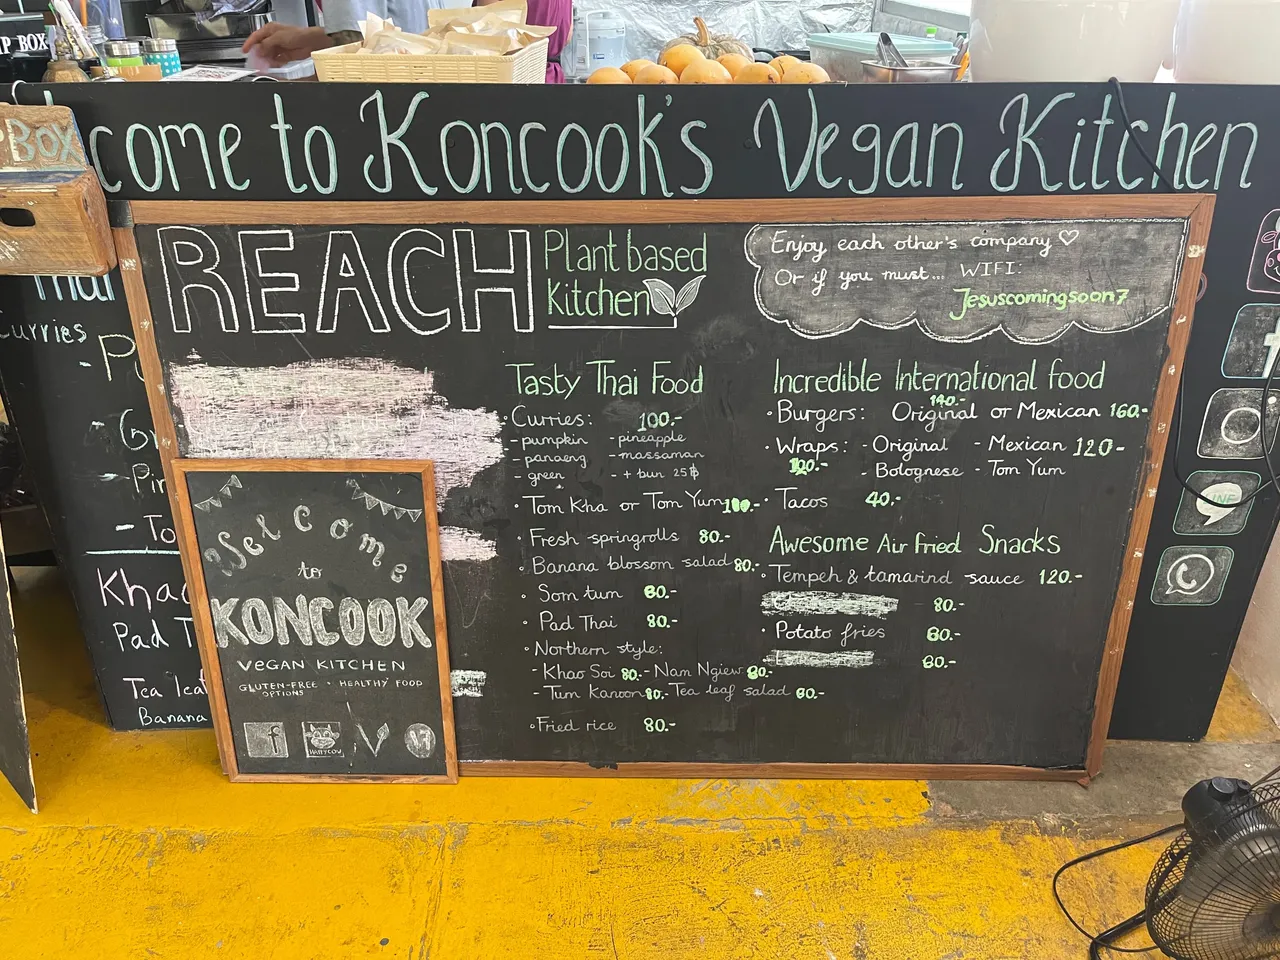 P BOX
BOX
come to Koncook's Vegan Kitchen
REACH
Plant based
Kitchen
Enjoy each other's company ♡
Or if you must... WIFI:
Jesuscomingsoon7
Curries
Tasty Thai Food
• Curries: 100.-
- pumpkin - pineapple
- panaeng - massaman
- green - + bun 25฿
• Tom Kha or Tom Yum 100.-
• Fresh springrolls 80.-
• Banana blossom salad 80.-
• Som tum 60.-
• Pad Thai 80.-
• Northern style:
- Khao Soi 80.- - Nam Ngiew 80.-
- Tum Kanoon 80.- - Tea leaf salad 80.-
• Fried rice 80.-
Incredible International food
140.-
• Burgers: Original or Mexican 160.-
• Wraps: - Original - Mexican 120-
120.- - Bolognese - Tom Yum
• Tacos 40.-
Awesome Air fried Snacks
• Tempeh & tamarind sauce 120.-
80.-
• Potato fries 80.-
60.-
Welcome
to
KONCOOK
VEGAN KITCHEN
GLUTEN-FREE • HEALTHY FOOD
OPTIONS
f
HAPPYCOW
Khao
Pad T
Tea leaf
Banana
f
LINE